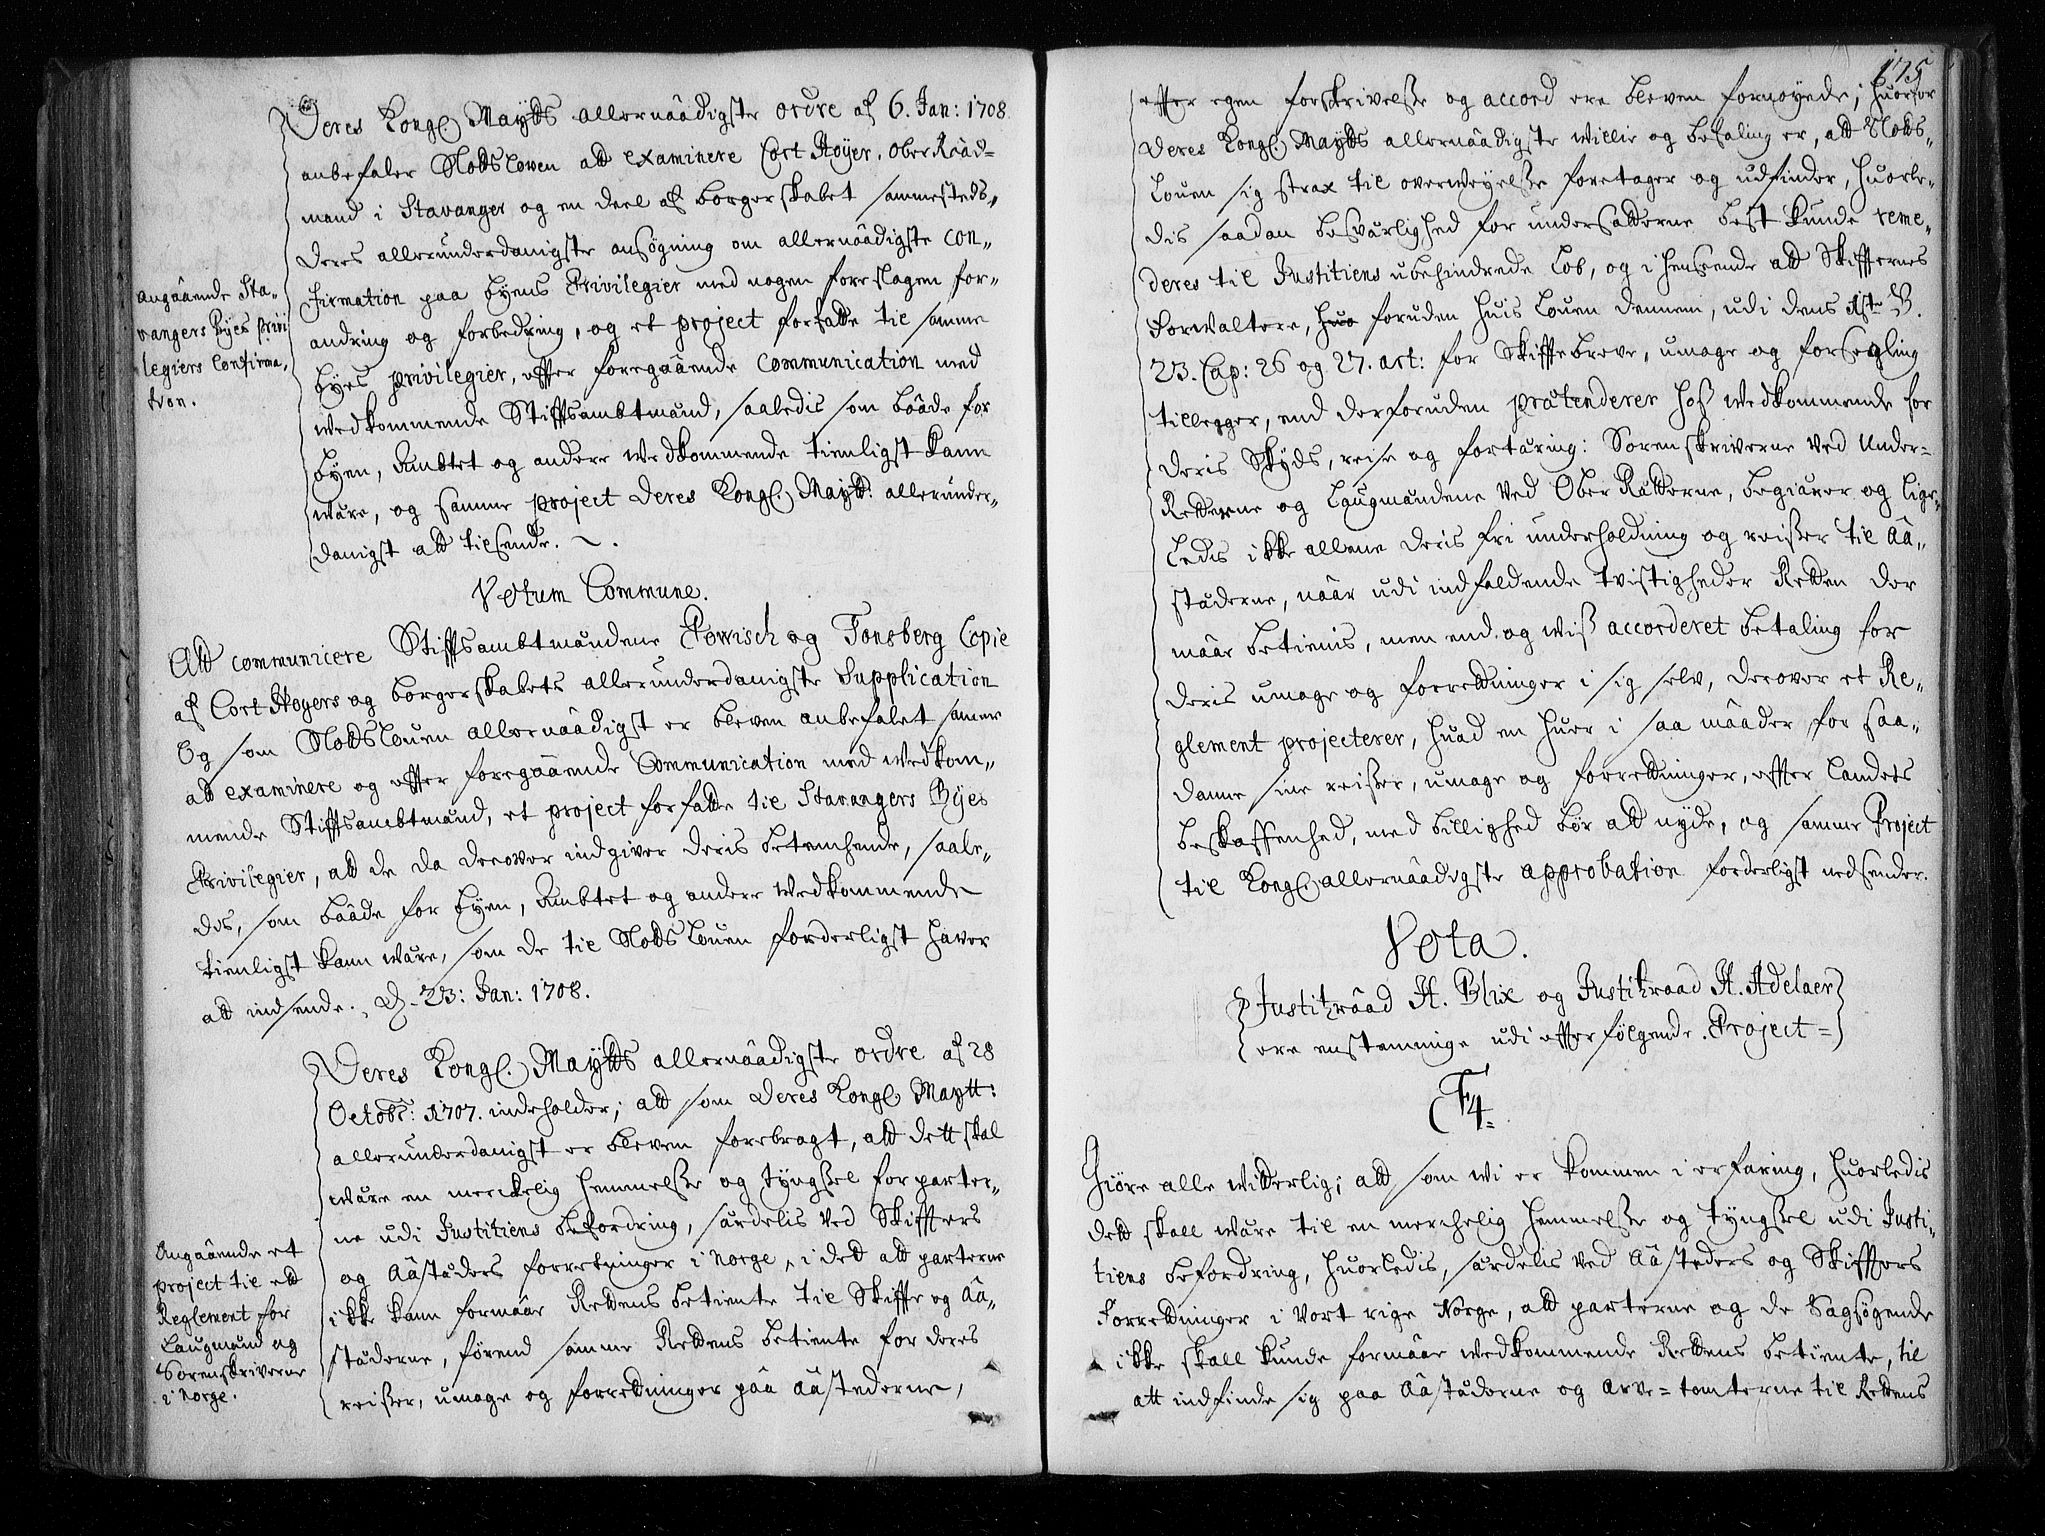 Deres Kongl. Maytts allernaadigste ordre af 6. Jan: 1708.
anbefaler Slotsloven att examinere Cort Høyer, Ober Raad=
mand i Stavanger og en deel af borgerskabet sammesteds,
deres allerunderdanigste ansøgning om allernaadigste con,,
firmation paa byens Privilegier med nogen foreslagen for,,
andring og forbedring, og et project forfatte til samme
byes privilegier, effter foregaaende communication med
wedkommende Stiffsambtmand, saaledis som baade for
byen, Ambtet og andere wedkommende tienligst kann
wære, og samme project deres Kongl. Maytt: allerunder,,
danigst att tilsende.
angaaende Sta,,
vangers Byes privi
legiers Confirma,
tion.
Votum Commune.
Att communicere Stiffsambtmændene Powisch og Tonsberg Copie
af Cort Høyers og borgerskabets allerunderdanigste Supplication
Og som Slotslouen allernaadigst er bleven anbefalet samme
att examinere og effter foregaaende Communication med wedkom,,
mende Stiffsambtmand, et project forfatte til Stavangers Byes
Privilegier, att de da derover indgiver deris betenchende, saale,,
des, som baade for byen, Ambtet og andere wedkommende
tienligst kann wære, som de til Slotslouen forderligst haver
att indsende. D. 23: Jan: 1708.
Deres Kongl. Maytts allernaadigste ordre af 28
Octobr: 1707. indeholder; att som Deres Kongl Maytt:
allerunderdanigst er bleven forebragt, att dett skal
wære en merckelig hemmelse og tyngsel for parter,,
ne udi Justitiens befordring, særdelis ved Skiffters
og Aastæders forretninger i Norge, i dett att parterne
ikke kann formaae Rettens betiente til Skiffte og Aa,,
stæderne, førend samme Rettens betiente for deres
reiser, umage og forretninger paa Aastederne,
Angaaende et
project til ett
Reglement for
Laugmænd og
Sorenskriverne
i Norge.
175
effter egen forskrivelse og accord ere bleven fornøyede; huorfor
Deres Kongl. Maytts allernaadigste willie og befaling er, att Slots,,
louen sig strax til overweyelse foretager og udfinder, huorle,,
dis saadan besværlighed for undersatterne best kunde reme,,
deres til Justitiens ubehindrede løb, og i henseende att Skiffternes
Forwaltere, huo foruden huis Louen dennem, udi dens 1ste B.
23. Cap: 26 og 27. art: for Skifftebreve, umage og forsegling
tillegger, end derforuden prætenderer hos wedkommende for
deris Skyds, reise og fortæring: Sorenskriverne ved Under=
Retterne og Laugmændene ved Ober Retterne, begiærer og lige,,
ledis ikke allene deris fri underholdning og reiser til Aa,,
stæderne, naar udi indfaldende tvistigheder Retten der
maae betienis, men end og wiss accorderet betaling for
deris umage og forretninger i sig selv, derover et Re,,
glement projecterer, huad en huer i saa maader for saa,,
danne sine reiser, umage og forretninger, effter landets
beskaffenhed, med billighed bør att nyde, og samme Project
til Kongl. allernaadigste approbation forderligst nedsender.
Vota.
Justitzraad H. Blix og Justitzraad H. Adelaer
ere enstemmige udi efterfølgende Project=
F4.
Giøre alle witterlig; att som wi er kommen i erfaring, huorledis
dett skall wære til en merchelig hemmelse og tyngsel udi Justi,,
tiens befordring, huorledis, særdelis ved Aasteders og Skiffters
Forretninger i vort rige Norge, att parterne og de Sagsøgende
ikke skall kunde formaae wedkommende Rettens betiente, til
att indfinde sig paa Aastæderne og arve=tomterne til Rettens